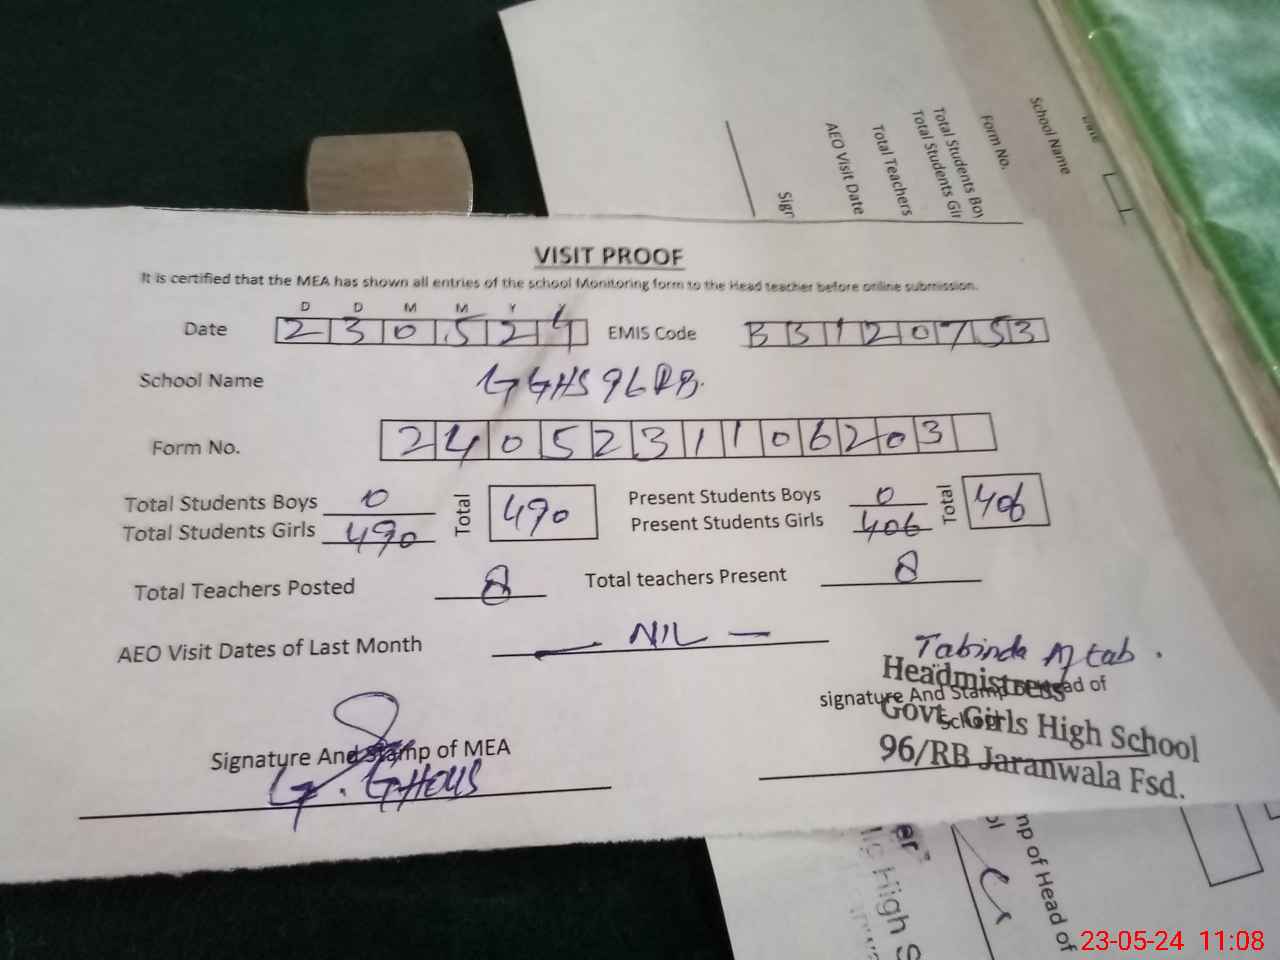 Date
School Name
Form No.
Total Students Boy
Total Students Gir
Total Teachers
AEO Visit Date
Sigr
VISIT PROOF
It is certified that the MEA has shown all entries of the school Monitoring form to the Head teacher before online submission.
D D M M Y Y
Date 2 3 0 5 2 4 EMIS Code 3 3 1 2 0 7 5 3
School Name GGHS 96 RB.
Form No. 2 4 0 5 2 3 1 1 0 6 2 0 3
Total Students Boys 0 Total 490 Present Students Boys 0 Total 406
Total Students Girls 490 Present Students Girls 406
Total Teachers Posted 8 Total teachers Present 8
AEO Visit Dates of Last Month — NIL —
Tabinda Aftab.
Headmistress
signature And Stamp of Head of
School
Govt. Girls High School
96/RB Jaranwala Fsd.
Signature And Stamp of MEA
G. GHOUS
mp of Head of
ol
er
High S
23-05-24 11:08